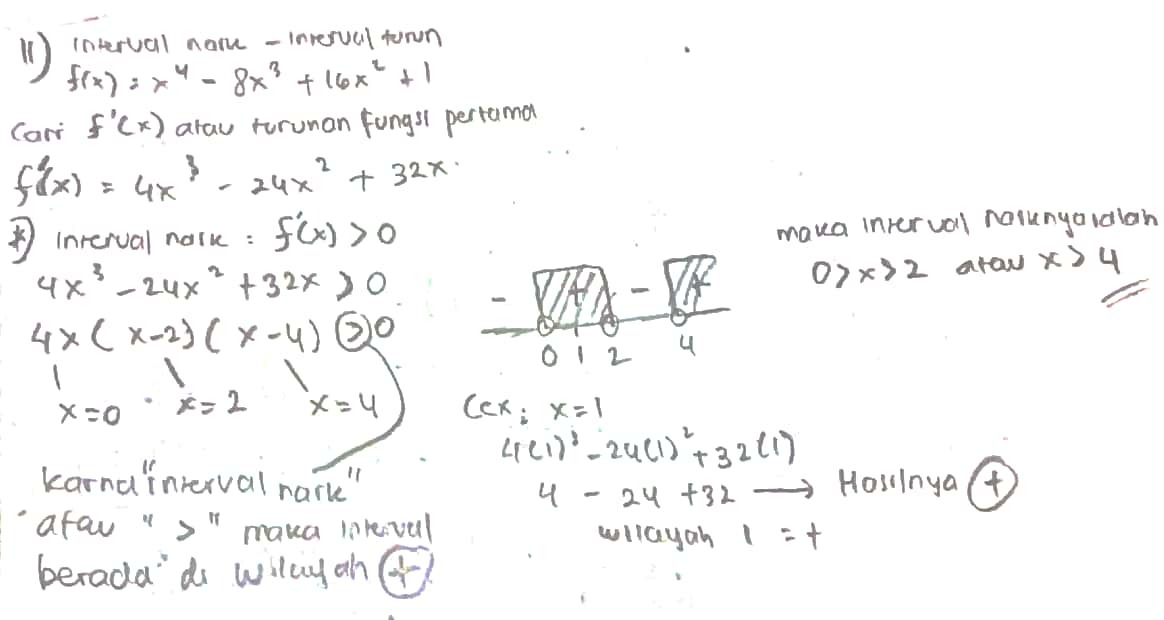 11) interval naik - interval turun
f(x) = x⁴ - 8x³ + 16x² + 1
Cari f'(x) atau turunan fungsi pertama
f'(x) = 4x³ - 24x² + 32x.
*) interval naik : f'(x) > 0
4x³ - 24x² + 32x > 0
4x ( x-2) ( x-4) > 0
x=0 x=2 x=4
karna "interval naik"
atau ">" maka interval
berada di wilayah +
- + - +
0 1 2 4
Cek ; x=1
4(1)³ - 24(1)² + 32(1)
4 - 24 + 32 → Hasilnya +
wilayah 1 = +
maka interval naiknya ialah
0>x>2 atau x>4